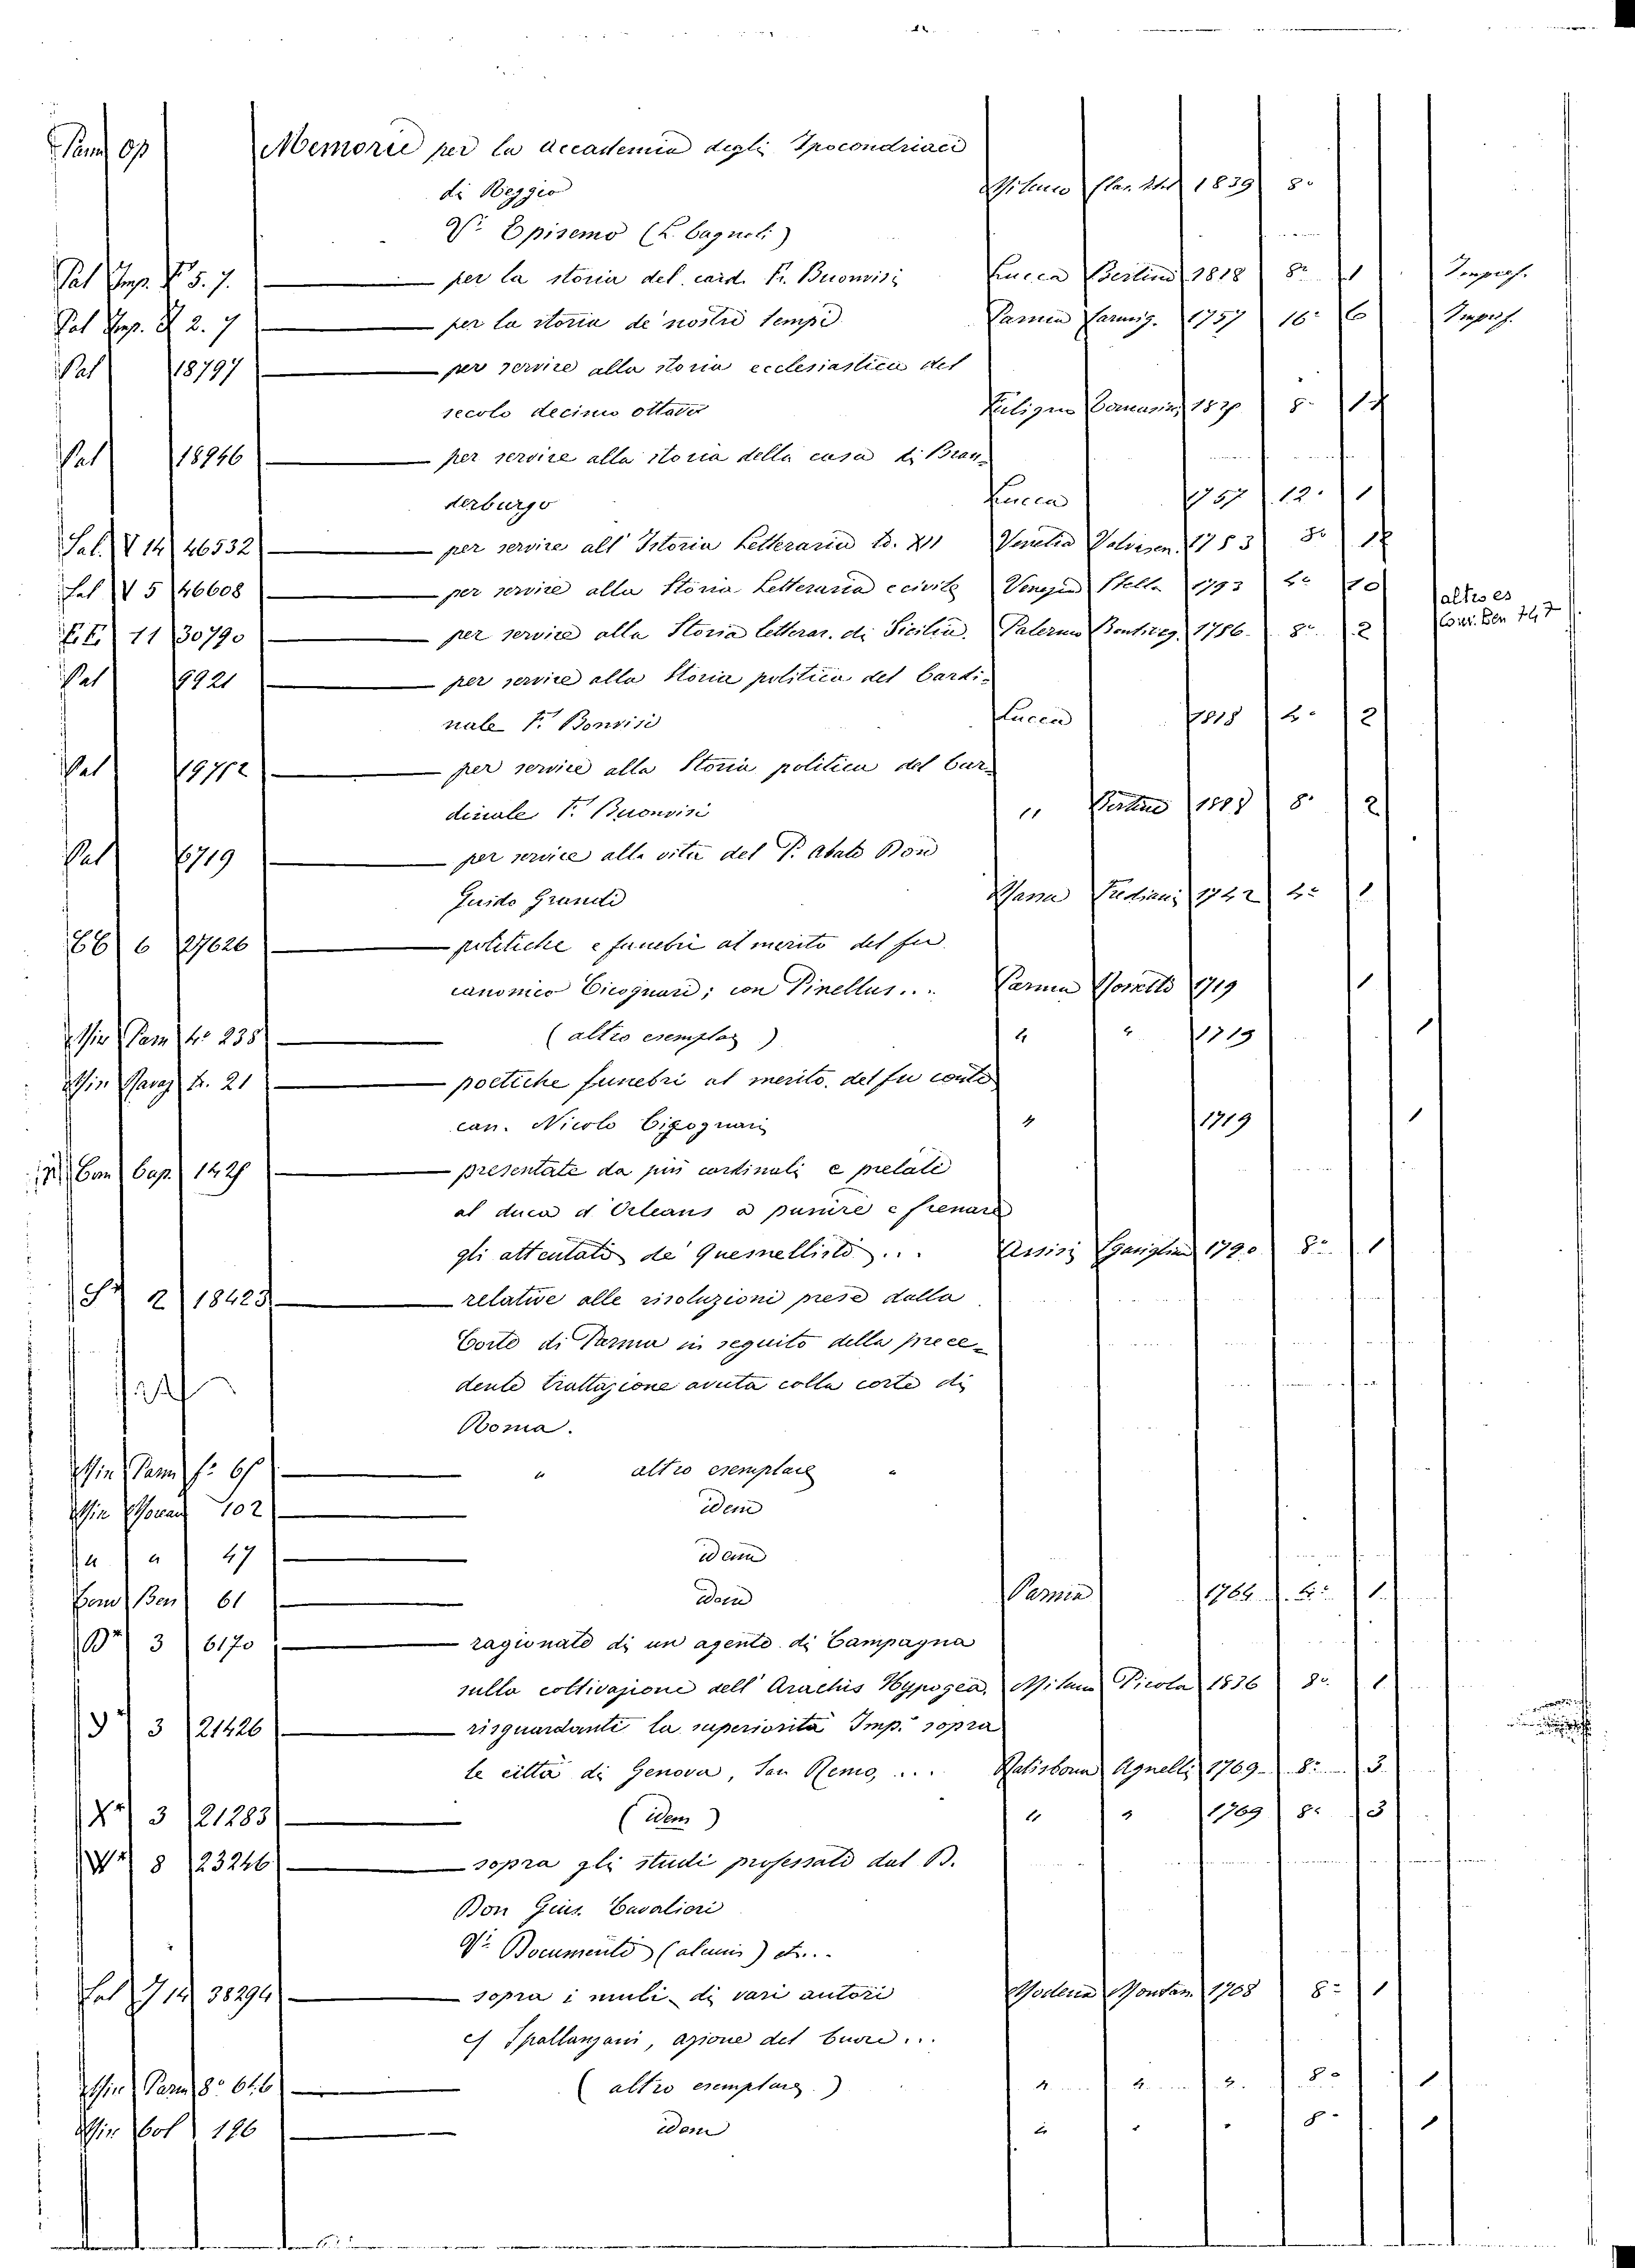 Memorie per la accademia degli Ipocondriaci
di Reggio Milano 1839 8°
Vi Episemo (L. Cagnoli)
Pal Imp. 5. 7. per la storia del card. Fr. Buonvisi Lucca Bertini 1818 8° 1
Pal Imp. 2. 7 per la storia de' nostri tempi 1757 16° 6
Pal 18797 per servire alla storia ecclesiastica del
secolo decimo ottavo 8°
Pal 18946 per servire alla storia della casa di Bran-
derburgo Lucca 1757 12° 1
Sal. V 14 46532 per servire all' Istoria Letteraria t. XII Venetia Valvasen. 1753 8°
Sal V 5 46608 per servire alla Storia Letteraria e civile Venezia Stella 1793
altro es
11 30790 per servire alla Storia letterar. di Sicilia. Palermo 1786 8° 2
Pal 9921 per servire alla Storia politica del Cardi-
nale F. Bonvisi Lucca 1818 4° 2
Pal 19712 per servire alla Storia politica del Car-
dinale F. Buonvisi " Bertini 8° 2
Pal 6719 per servire alla vita del P. Abate Don
Guido Grandi Frediani 1742 4° 1
6 27626 politiche e funebri al merito del fu
canonico Cicognari; con Pinellus... Parma 1719 1
Min Parm 4° 238 (altro esemplar) " " 1719 1
Min 4. 21 poetiche funebri al merito del fu conte
can. Nicolo Cigognari " 1719 1
Con Cap. presentate da più cardinali e prelati
al duca d'Orleans a punire e frenare
gli attentati de' Quesnellisti... Assisi Sgariglia 1720 8° 1
2 18423 relative alle risoluzioni prese dalla
Corte di Parma in seguito della prece-
dente trattazione avuta colla corte di
Roma.
Min Parm f° " altro esemplare "
Min 102 idem
" " 47 idem
Com Ben 61 idem Parma 1764 4° 1
3 6170 ragionate di un agente di Campagna
sulla coltivazione dell' Arachis Hypogea. Milano Pirola 1836 8° 1
3 21426 risguardanti la superiorità Imp. sopra
le città di Genova, San Remo, .... Ratisbona Agnelli 1769 8° 3
3 21283 (idem) " " 1769 8° 3
8 23246 sopra gli studi professati dal B.
Don Gius. Cavalieri
Vi Documenti (alcuni) etc...
Sal 14 38294 sopra i muli di vari autori Modena Montan 1768 8° 1
cf Spallanzani, azione del cuore...
Min Parm 8° 646 (altro esemplare) " " " 8° 1
Min Col 196 idem " " " 8° 1